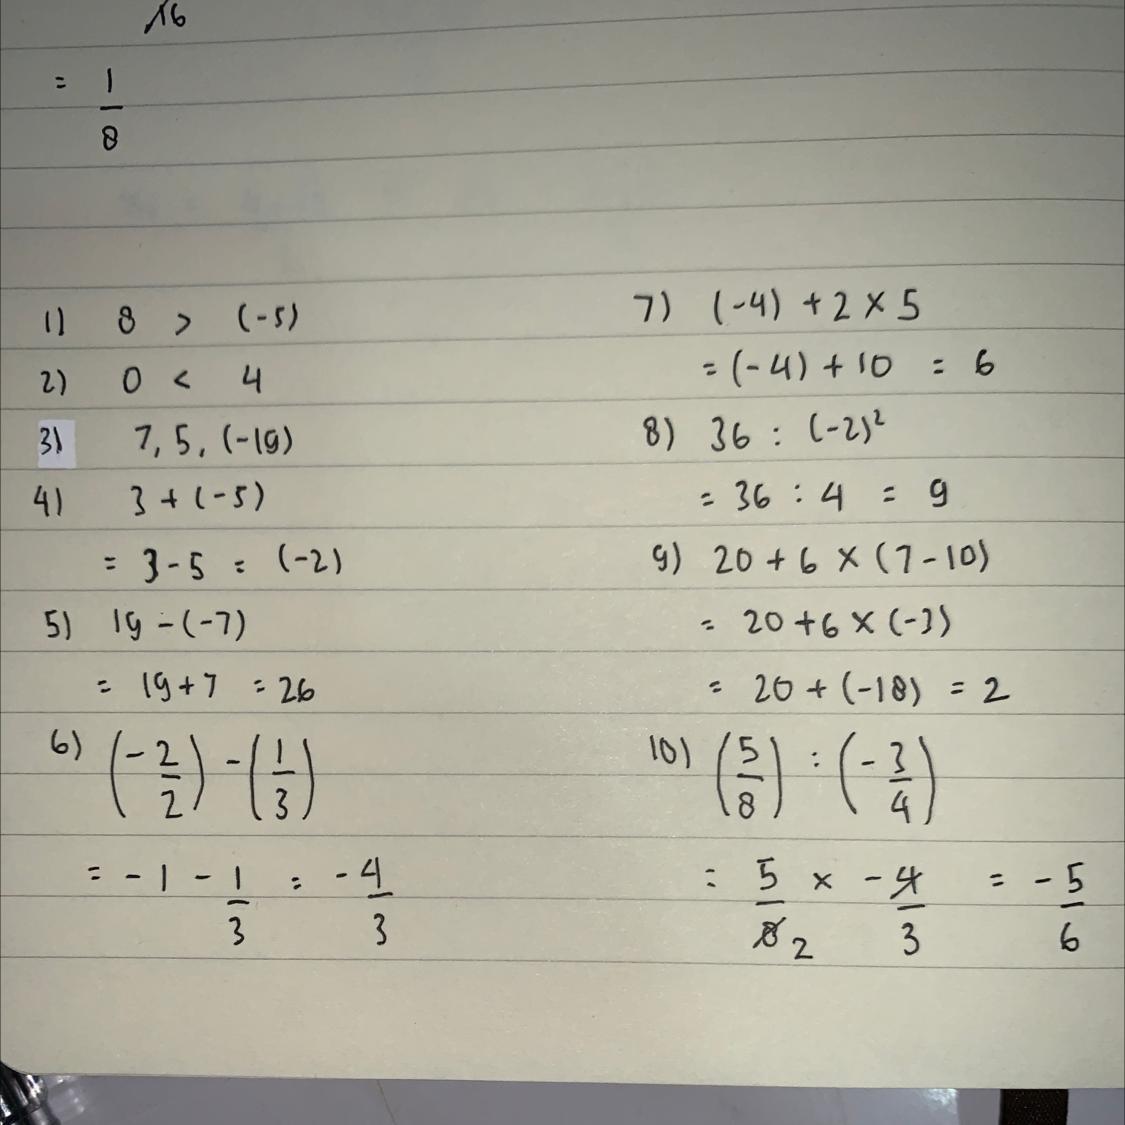 16
= 1/8
1) 8 > (-5)
2) 0 < 4
3) 7, 5, (-19)
4) 3 + (-5)
= 3 - 5 = (-2)
5) 19 - (-7)
= 19 + 7 = 26
6) (-2/2) - (1/3)
= -1 - 1/3 = -4/3
7) (-4) + 2 × 5
= (-4) + 10 = 6
8) 36 : (-2)²
= 36 : 4 = 9
9) 20 + 6 × (7 - 10)
= 20 + 6 × (-3)
= 20 + (-18) = 2
10) (5/8) : (-3/4)
= 5/8 2 × -4/3 = -5/6